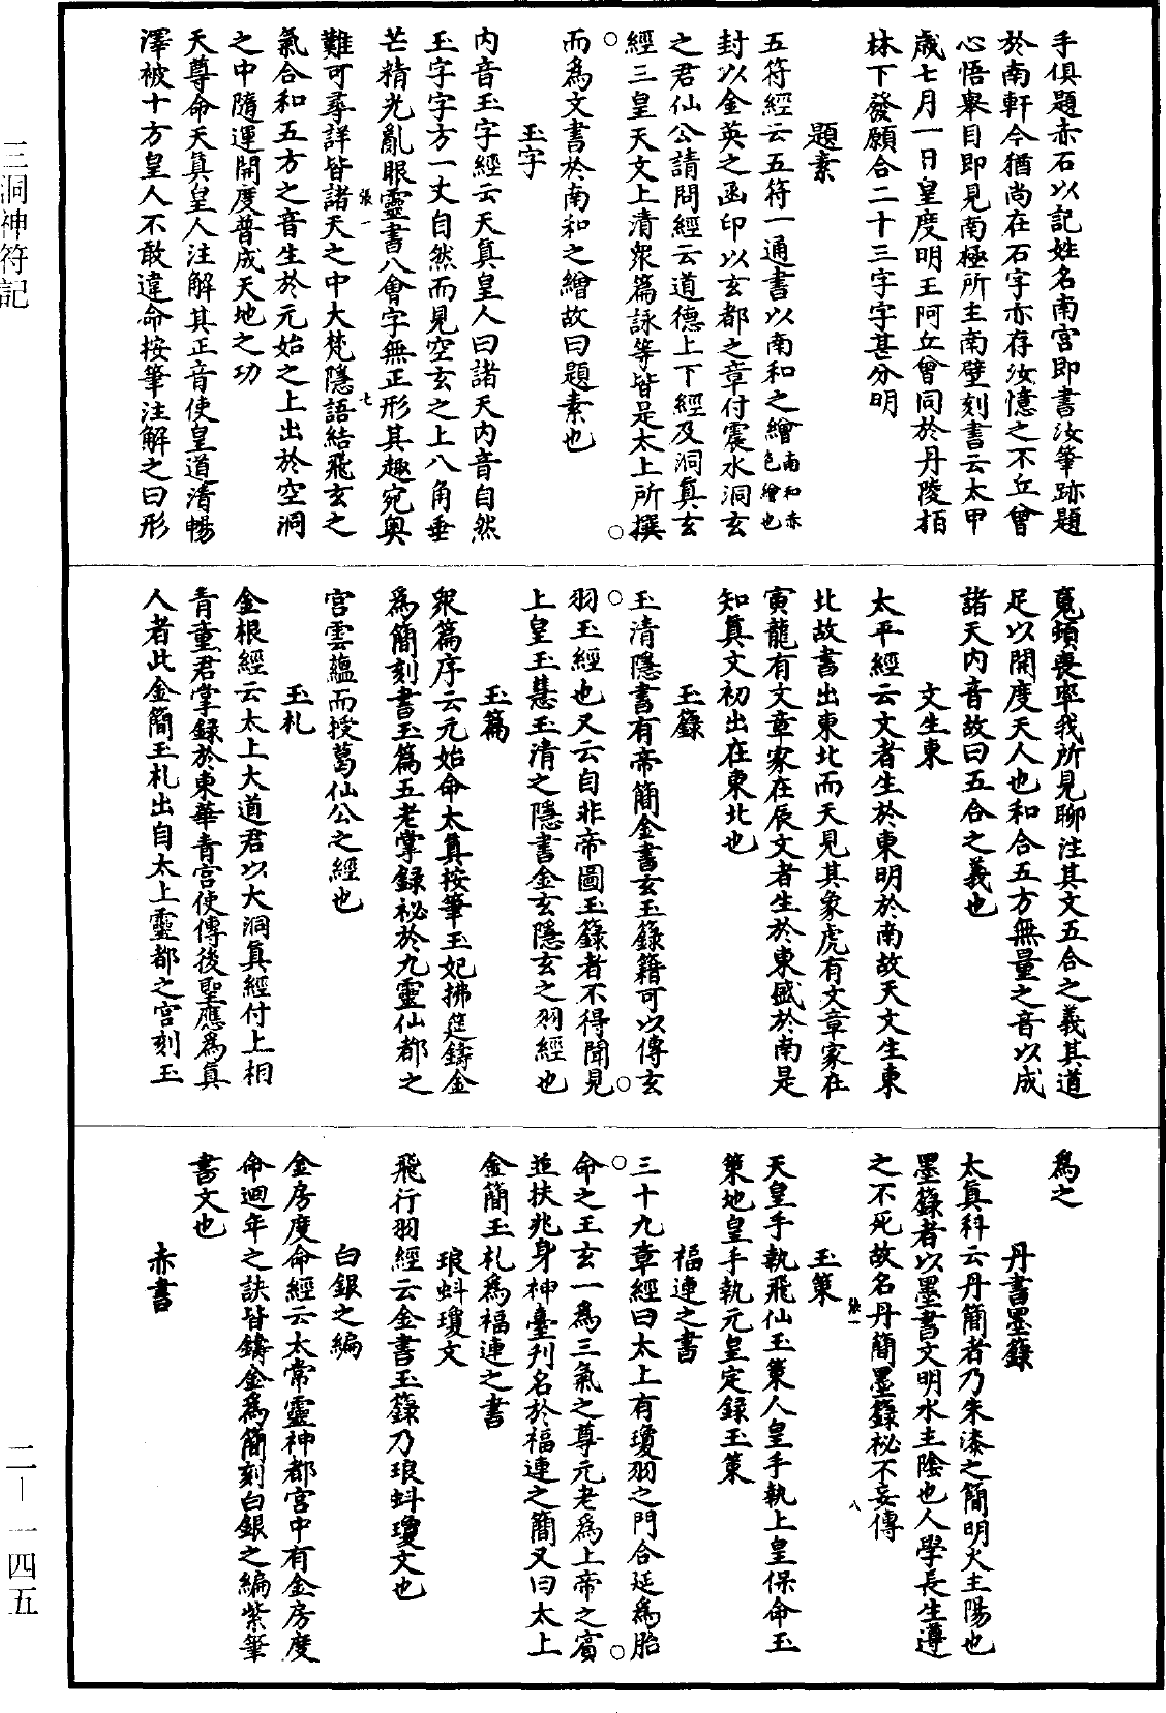 手俱題赤石以記姓名南宮即書汝筆跡題
於南軒今猶尚在石字亦存汝憶之不丘曾
心悟舉目即見南極所主南壁刻書云太甲
歲七月一日皇度明王阿丘曾同於丹陵栢
林下發願合二十三字字甚分明
題素
五符經云五符一通書以南和之繒南和赤色繒也
封以金英之函印以玄都之章付震水洞玄
之君仙公請問經云道德上下經及洞真玄
經三皇天文上清衆篇詠等皆是太上所撰
而為文書於南和之繒故曰題素也
玉字
內音玉字經云天真皇人曰諸天內音自然
玉字字方一丈自然而見空玄之上八角垂
芒精光亂眼靈書八會字無正形其趣宛奥
張一
七
難可尋詳皆諸天之中大梵隱語結飛玄之
氣合和五方之音生於元始之上出於空洞
之中隨運開度普成天地之功
天尊命天真皇人注解其正音使皇道清暢
澤被十方皇人不敢違命按筆注解之曰形
魂頓喪率我所見聊注其文五合之義其道
足以開度天人也和合五方無量之音以成
諸天內音故曰五合之義也
文生東
太平經云文者生於東明於南故天文生東
北故書出東北而天見其象虎有文章家在
寅龍有文章家在辰文者生於東盛於南是
知真文初出在東北也
玉籙
玉清隱書有帝簡金書玄玉籙籍可以傳玄
羽玉經也又云自非帝圖玉籙者不得聞見
上皇玉慧玉清之隱書金玄隱玄之羽經也
玉篇
衆篇序云元始命太真按筆玉妃拂筵鑄金
為簡刻書玉篇五老掌録祕於九靈仙都之
宮雲蘊而授葛仙公之經也
玉札
金根經云太上大道君以大洞真經付上相
青童君掌録於東華青宮使傳後聖應為真
人者此金簡玉札出自太上靈都之宮刻玉
為之
丹書墨籙
太真科云丹簡者乃朱漆之簡明火主陽也
墨籙者以墨書文明水主陰也人學長生遵
之不死故名丹簡墨籙祕不妄傳
張一
八
玉策
天皇手執飛仙玉策人皇手執上皇保命玉
策地皇手執元皇定録玉策
福連之書
三十九章經曰太上有瓊羽之門合延為胎
命之王玄一為三氣之尊元老為上帝之賓
並扶兆身神臺刋名於福連之簡又曰太上
金簡玉札為福連之書
琅蚪瓊文
飛行羽經云金書玉籙乃琅蚪瓊文也
白銀之編
金房度命經云太常靈神都宮中有金房度
命迴年之訣皆鑄金為簡刻白銀之編紫筆
書文也
赤書
三洞神符記
二－一四五